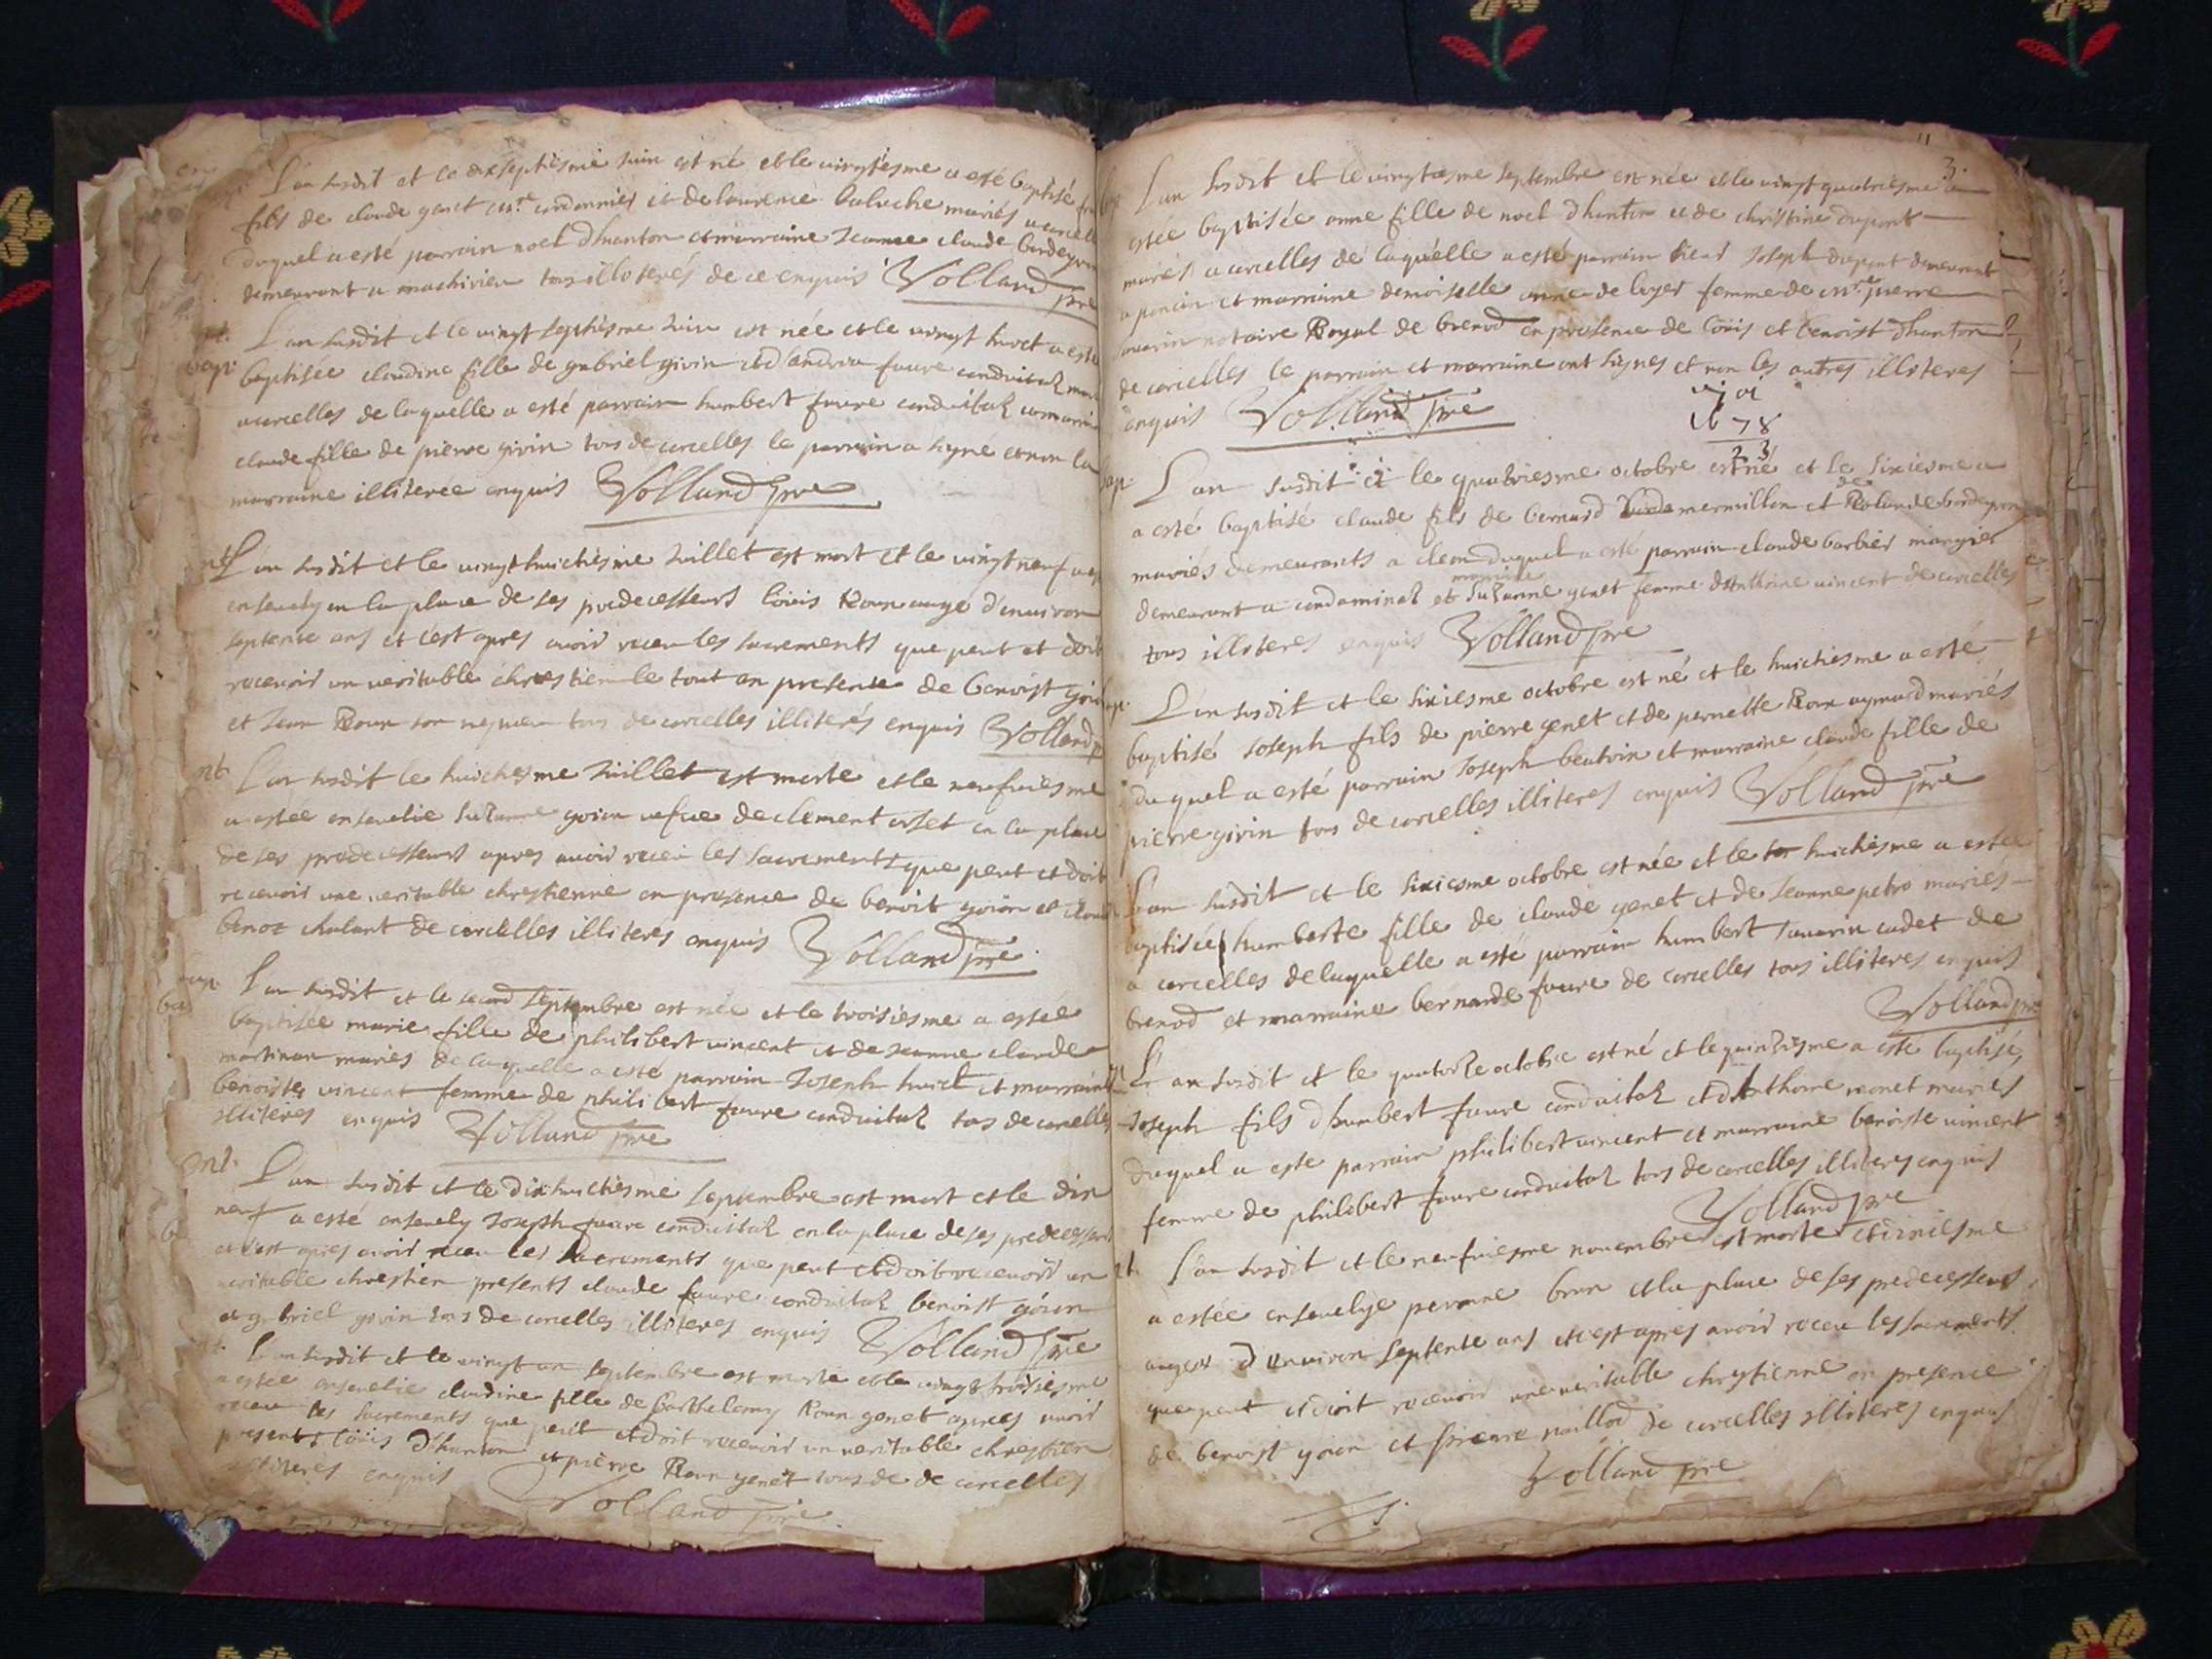 L'an susdit et le dixseptiesme juin est né et le vingtiesme a esté baptisé
fils de claude genet me cordonnier et de laurence baluche mariés a corcelle
duquel a esté parrain noel d'hunton et marraine Jeanne claude bordeyron
demeurant a machirieu tous illiterés de ce enquis Volland pre
bap. L'an susdit et le vingt septiesme Juin est née et le vingt huict a esté
baptisée claudine fille de gabriel girin et d'andrea faure conduitaz
a corcelles de laquelle a esté parrain humbert faure conduitaz et marraine
claude fille de pierre girin tous de corcelles le parrain a signé et non la
marraine illiteree enquis Volland pre
mt L'an susdit et le vingt huictiesme Juillet est mort et le vingt neuf a esté
ensevely en la place de ses predecesseurs louis Roux aagé d'environ
septente ans et c'est apres avoir receu les sacrements que peut et doit
recevoir un veritable chrestien le tout en presence de benoist goion
et Jean Roux son nepveu tous de corcelles illiterés enquis Volland p
mt. L'an susdit le huictiesme Juillet est morte et le neufviesme
a estée ensevelie Suzanne goion vefve de clement orset en la place
de ses predecesseurs apres avoir receu les sacrements que peut et doit
recevoir une veritable chrestienne en presence de benoit goion et
benoz chalant de corcelles illiterés enquis Volland pre
bap L'an susdit et le second septembre est née et le troisiesme a estée
baptisée marie fille de philibert vincent et de Jeanne claude
martinan mariés de laquelle a esté parrain Joseph huict et marraine
benoiste vincent femme de philibert faure conduitaz tous de corcelles
illiteres enquis Volland pre
mt. L'an susdit et le dixhuictiesme septembre est mort et le dix
neuf a esté ensevely Joseph faure conduitaz en la place de ses predecesseurs
et c'est apres avoir receu les sacrements que peut et doit recevoir un
veritable chrestien presents claude faure conduitaz benoist goion
et gabriel girin tous de corcelles illiteres enquis Volland pre
L'an susdit et le vingt un septembre est morte et le vingt troisiesme
a estée ensevelie claudine fille de barthelemy Roux genet apres avoir
receu les sacrements que peut et doit recevoir un veritable chrestien
presents louis d'hunton et pierre Roux genet tous de de corcelles
illiteres enquis Volland pre
3.
L'an susdit et le vingtiesme septembre est née et le vingt quatriesme a
estée baptisée anne fille de noel d'hunton et de christine dupont
mariés a corcelles de laquelle a esté parrain sieur Joseph dupont demeurant
a poncin et marraine demoiselle anne de loyes femme de mre pierre
savarin notaire Royal de brenod en presence de louis et benoist d'hunton
de corcelles le parrain et marraine ont signés et non les autres illiteres
enquis Volland pre
1701
1678
23
bap. L'an susdit et le quatriesme octobre est né et le sixiesme a
a esté baptisé claude fils de bernard mermillon et de Rolande bordeyron
mariés demeurants a cleon duquel a esté parrain claude barbier mangier
demeurant a condaminaz et marraine Suzanne genet femme d'Anthoine vincent de corcelles
tous illiteres enquis Volland pre
L'an susdit et le sixiesme octobre est né et le huictiesme a esté
baptisé Joseph fils de pierre genet et de pernette Roux aymard mariés
duquel a esté parrain Joseph beatrix et marraine claude fille de
pierre girin tous de corcelles illiteres enquis Volland pre
L'an susdit et le sixiesme octobre est née et le huictiesme a estée
baptisée humberte fille de claude genet et de Jeanne petro mariés
a corcelles de laquelle a esté parrain humbert savarin cadet de
brenod et marraine bernarde faure de corcelles tous illiteres enquis
Volland pre
L'an susdit et le quatorze octobre est né et le quinziesme a esté baptisé
Joseph fils d'humbert faure conduitaz et d'Anthoine monet mariés
duquel a esté parrain philibert vincent et marraine benoiste vincent
femme de philibert faure conduitaz tous de corcelles illiteres enquis
Volland pre
L'an susdit et le neufviesme novembre est morte et dixiesme
a estée ensevelye peronne brun et la place de ses predecesseurs
aagee d'environ septente ans et c'est apres avoir receu les sacrements
que peut et doit recevoir une veritable chrestienne en presence
de benoist goion et pierre de corcelles illiteres enquis
Volland pre